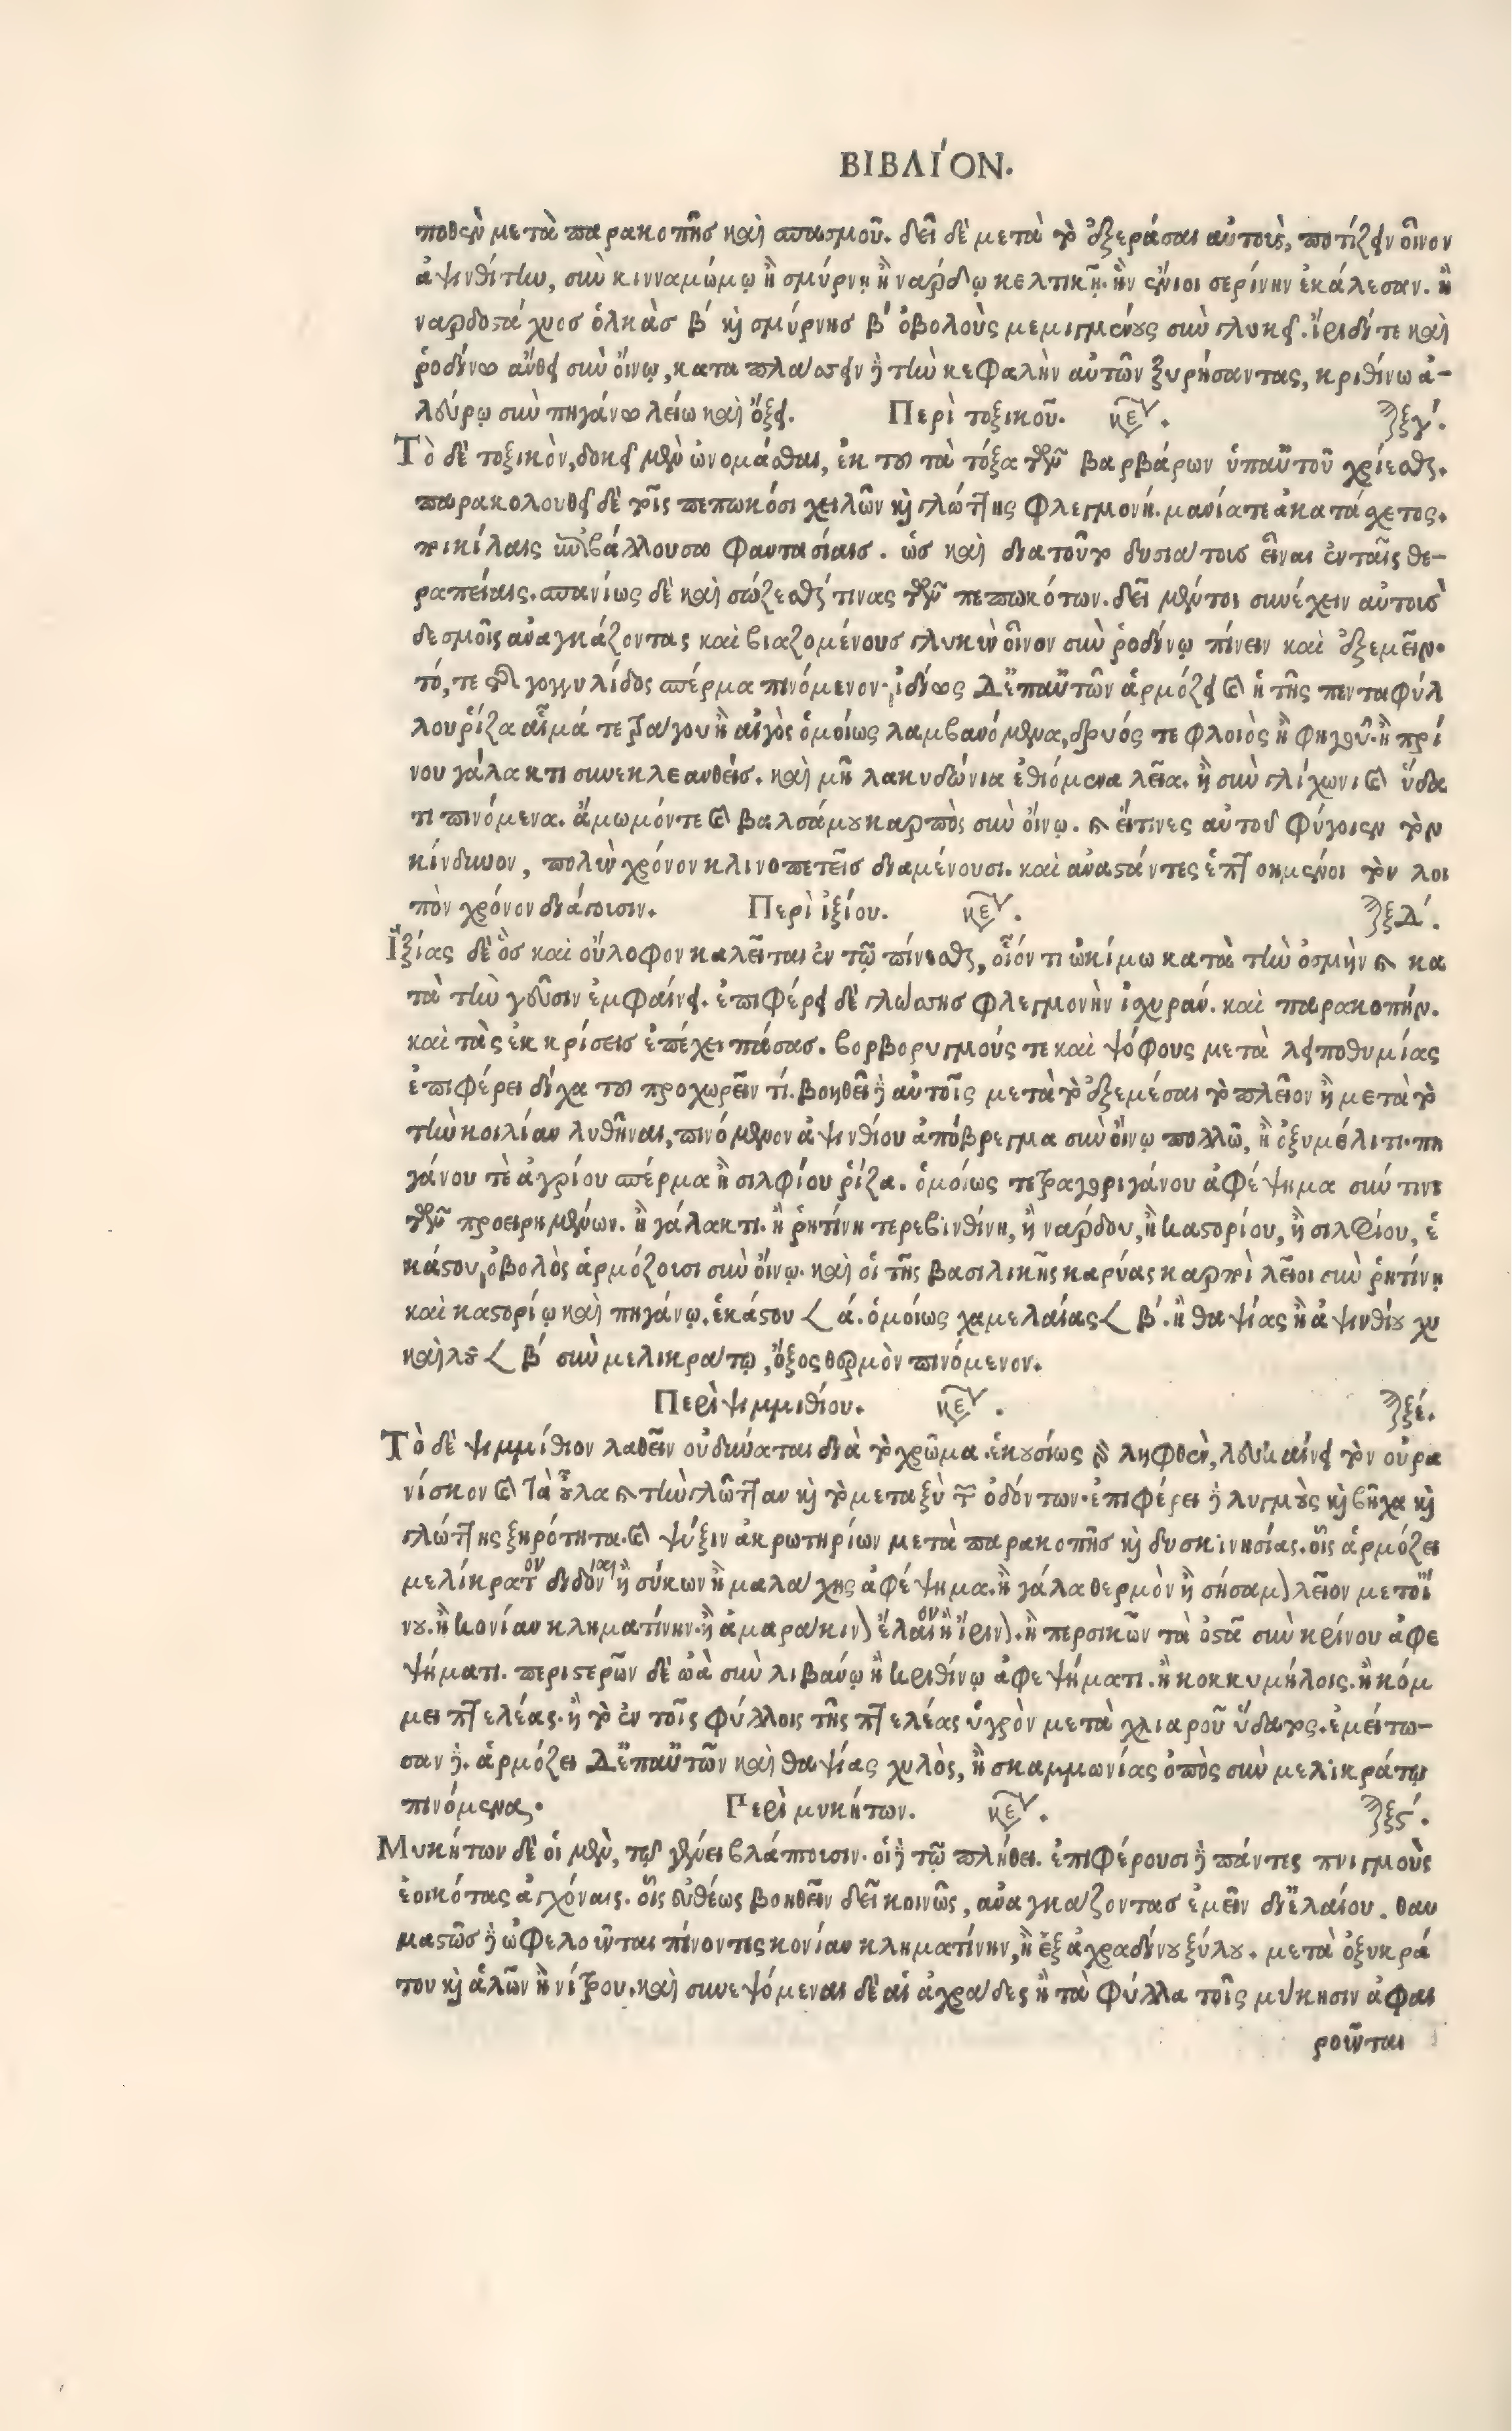 ΒΙΒΛΊΟΝ.
ποθεν μετὰ παρακοπῆσ καὶ σπασμοῦ. δεῖ δὲ μετὰ τὸ ἐξεράσαι αὐτοὺς, ποτίζειν οἶνον
ἀψινθίτην, σὺν κινναμώμῳ ἢ σμύρνῃ ἢ νάρδῳ κελτικῇ. ἣν ἔνιοι σερίνην ἐκάλεσαν. ἢ
ναρδοστάχυοσ ὁλκὰσ β′ καὶ σμύρνησ β′ ὀβολοὺς μεμιγμένους σὺν γλυκεῖ. ἴριδί τε καὶ
ῥοδίνω ἄνθει σὺν οἴνῳ, καταπλάσσειν δὲ τὴν κεφαλὴν αὐτῶν ξυρήσαντας, κριθίνω ἀ-
λεύρῳ σὺν πηγάνω λείω καὶ ὄξει. Περὶ τοξικοῦ. κεφ. ξγ′.
Τὸ δὲ τοξικὸν, δοκεῖ μὲν ὠνομάσθαι, ἐκ τοῦ τὰ τόξα τῶν βαρβάρων ὑπ' αὐτοῦ χρίεσθαι.
παρακολουθεῖ δὲ τοῖς πεπωκόσι χειλῶν καὶ γλώττης φλεγμονή. μανία τε ἀκατάσχετος.
ποικίλαις ὑποβάλλουσα φαντασίαις. ὡς καὶ διατοῦτο δυσιάτοις εἶναι ἐν ταῖς θε-
ραπείαις. σπανίως δὲ καὶ σώζεσθαί τινας τῶν πεπωκότων. δεῖ μέντοι συνέχειν αὐτοὺσ
δεσμοῖς ἀναγκάζοντας καὶ βιαζομένους γλυκὺν οἶνον σὺν ῥοδίνῳ πίνειν καὶ ἐξεμεῖν.
τό, τε τῆς γογγυλίδος σπέρμα πινόμενον. ἰδίως δ' ἐπ' αὐτῶν ἁρμόζει καὶ ἡ τῆς πενταφύλ
λου ῥίζα αἷμά τε τράγου ἢ αἰγὸς ὁμοίως λαμβανόμενα, δρυός τε φλοιὸς ἢ φηγοῦ. ἢ πρί
νου γάλακτι συνεκλεανθείσ. καὶ μῆλα κυδώνια ἐσθιόμενα λεῖα. ἢ σὺν γλίχωνι καὶ ὕδα
τι πινόμενα. ἄμωμόν τε καὶ βαλσάμου καρπὸς σὺν οἴνῳ. καὶ εἴ τινες αὐτοῦ φύγοιεν τὸν
κίνδυνον, πολὺν χρόνον κλινοπετεῖς διαμένουσι. καὶ ἀναστάντες ἐπτοημένοι τὸν λοι
πὸν χρόνον διάγουσιν. Περὶ ἰξίου. κεφ. ξδ′.
Ἰξίας δὲ ὃσ καὶ οὔλοφον καλεῖται ἐν τῷ πίνεσθαι, οἷόν τι ὠκίμω κατὰ τὴν ὀσμὴν καὶ κα
τὰ τὴν γεῦσιν ἐμφαίνει. ἐπιφέρει δὲ γλώσσησ φλεγμονὴν ἰσχυράν. καὶ παρακοπήν.
καὶ τὰς ἐκκρίσεισ ἐπέχει πάσας. βορβορυγμούς τε καὶ ψόφους μετὰ λειποθυμίας
ἐπιφέρει δίχα τοῦ προχωρεῖν τί. βοηθεῖ δὲ αὐτοῖς μετὰ τὸ ἐξεμέσαι τὸ πλεῖον ἢ μετὰ τὸ
τὴν κοιλίαν λυθῆναι, πινόμενον ἀψινθίου ἀπόβρεγμα σὺν οἴνῳ πολλῶ, ἢ ὀξυμέλιτι. πη
γάνου τὲ ἀγρίου σπέρμα ἢ σιλφίου ῥίζα. ὁμοίως τε τραγοριγάνου ἀφέψημα σύν τινι
τῶν προειρημένων. ἢ γάλακτι. ἢ ῥητίνη τερεβινθίνη, ἢ νάρδου, ἢ καστορίου, ἢ σιλφίου, ἑ
κάστου, ὀβολὸς ἁρμόζουσι σὺν οἴνῳ. καὶ οἱ τῆς βασιλικῆς καρύας καρποὶ λεῖοι σὺν ῥητίνῃ
καὶ καστορίῳ καὶ πηγάνῳ. ἑκάστου 𐅻 ά. ὁμοίως χαμελαίας 𐅻 β′. ἢ θαψίας ἢ ἀψινθίου χυ
καὶ λοῦ 𐅻 β′ σὺν μελικράτῳ, ὄξος θερμὸν πινόμενον.
Περὶ ψιμμιθίου. κεφ. ξέ.
Τὸ δὲ ψιμμίθιον λαθεῖν οὐ δύναται διὰ τὸ χρῶμα. ἑκουσίως δὲ ληφθὲν, λευκαίνει τὸν οὐρα
νίσκον καὶ τὰ οὖλα καὶ τὴν γλῶτταν καὶ τὸ μεταξὺ τῶν ὀδόντων. ἐπιφέρει δὲ λυγμοὺς καὶ βῆχα καὶ
γλώττης ξηρότητα. καὶ ψύξιν ἀκρωτηρίων μετὰ παρακοπῆσ καὶ δυσκινησίας. οἷς ἁρμόζει
μελίκρατον διδόναι ἢ σύκων ἢ μαλάχης ἀφέψημα. ἢ γάλα θερμὸν ἢ σήσαμον λεῖον μετ' οἴ
νου. ἢ κονίαν κληματίνην. ἢ ἀμαράκινον ἔλαιον ἢ ἴρινον. ἢ περσικῶν τὰ ὀστᾶ σὺν κρίνου ἀφε
ψήματι. περιστερῶν δὲ ὠὰ σὺν λιβάνῳ ἢ κριθίνῳ ἀφεψήματι. ἢ κοκκυμήλοις. ἢ κόμ
μει πτελέας. ἢ τὸ ἐν τοῖς φύλλοις τῆς πτελέας ὑγρὸν μετὰ χλιαροῦ ὕδατος. ἐμείτω-
σαν δέ. ἁρμόζει δ' ἐπ' αὐτῶν καὶ θαψίας χυλὸς, ἢ σκαμμωνίας ὀπὸς σὺν μελικράτῳ
πινόμενα. Περὶ μυκήτων. κεφ. ξϛ′.
Μυκήτων δὲ οἱ μὲν, τῷ γένει βλάπτουσιν. οἱ δὲ τῷ πλήθει. ἐπιφέρουσι δὲ πάντες πνιγμοὺς
ἐοικότας ἀγχόναις. οἷς εὐθέως βοηθεῖν δεῖ κοινῶς, ἀναγκάζοντασ ἐμεῖν δι' ἐλαίου. θαυ
μαστῶσ δὲ ὠφελοῦνται πίνοντες κονίαν κληματίνην, ἢ ἐξ ἀχραδίνου ξύλου. μετὰ ὀξυκρά
του καὶ ἁλῶν ἢ νίτρου. καὶ συνεψόμεναι δὲ αἱ ἀχράδες ἢ τὰ φύλλα τοῖς μύκησιν ἀφαι
ροῦνται